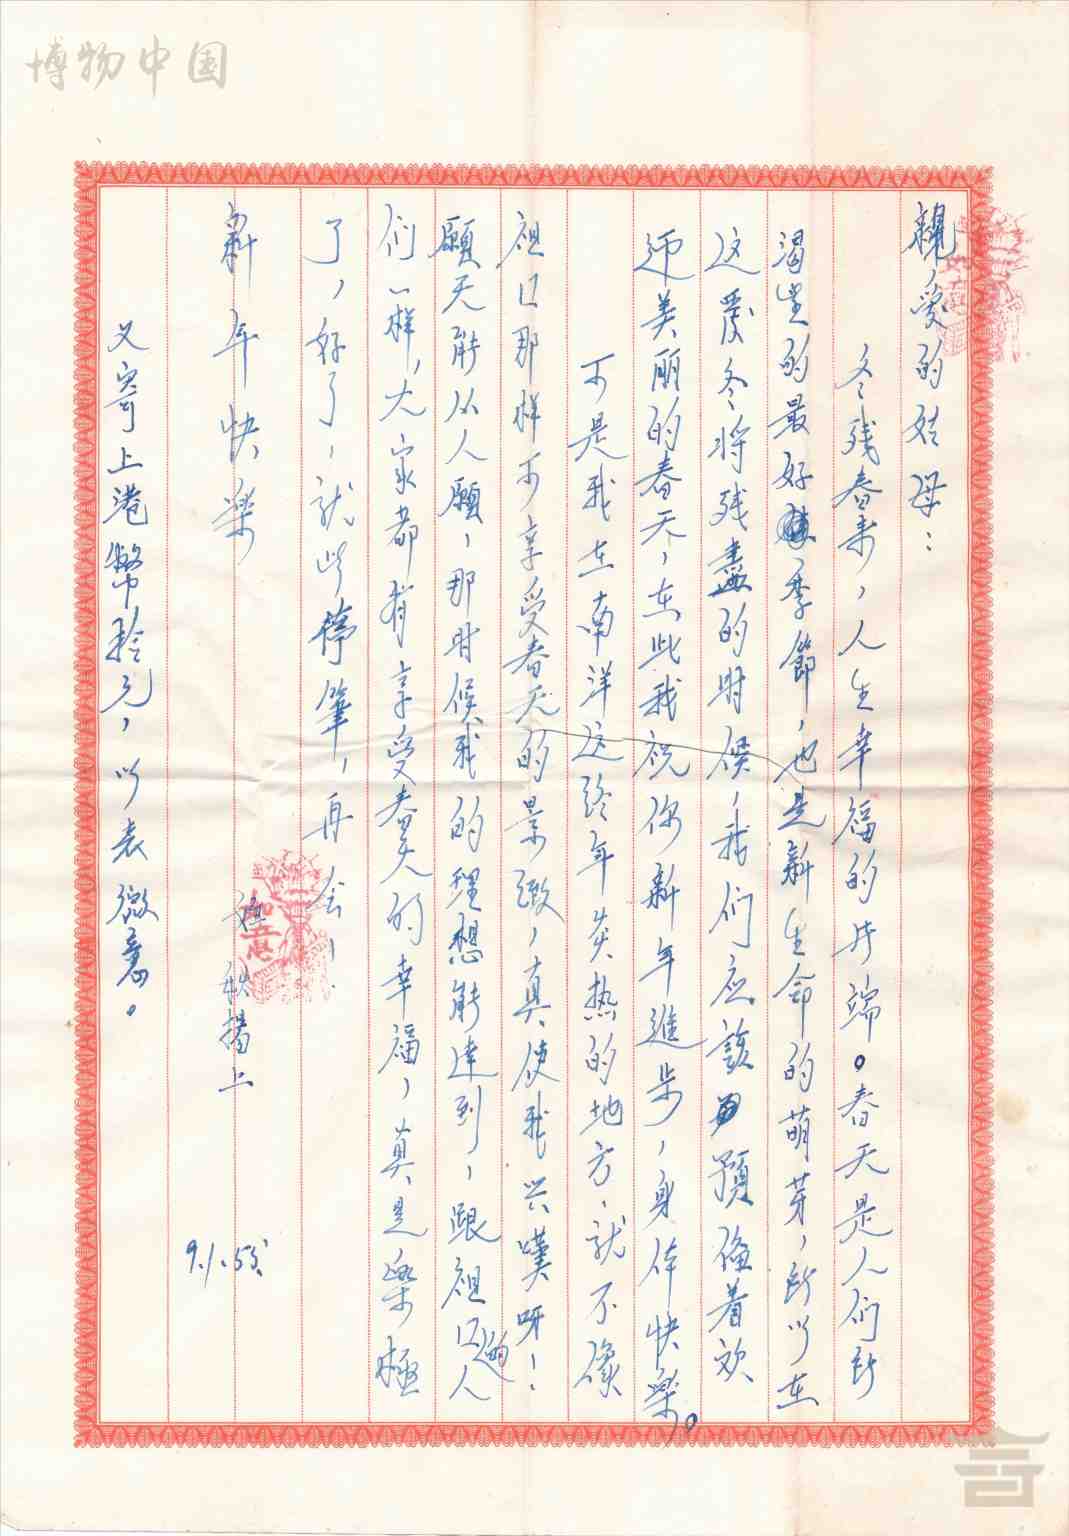 博物中国
親爱的姑母：
冬残春来，人生幸福的开端。春天是人们所
渴望的最好季節，也是新生命的萌芽，所以在
这嚴冬将残盡的时候，我们应該預備着欢
迎美丽的春天，在此我祝你新年進步，身体快樂。
可是我在南洋这終年炎热的地方，就不像
祖囗那样可享受春天的景緻，真使我兴嘆呀！
願天能从人願，那时候我的理想能達到，跟祖囗的人
们一样，大家都有享受春天的幸福，真是樂極
了，好了，就此停筆，再会！
新年快樂
秋揚上
9.1.55.
又寄上港幣拾元，以表微意。